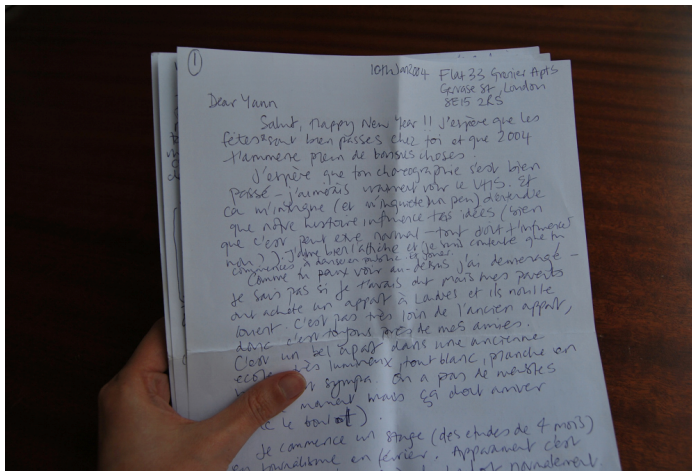 1
10th Jan 2004
Flat 33 Grenier Apts
Gervase St, London
SE15 2RS
Dear Yann
Salut, Happy New Year!! J'espère que les
fêtes sont bien passés chez toi et que 2004
t'ammène plein de bonnes choses.
J'espère que ton choreographie s'est bien
passé - j'aimerais vraiment voir le VHS. Et
ca m'intrigue (et m'inquiete un peu) d'entendre
que notre histoire influence tes idées (bien
que c'est peut etre normal - tout doit t'influencer
non?). J'aime bien l'affiche et je suis contente que tu
commences à danser en public
Comme tu peux voir au-dessus j'ai demenagé -
Je sais pas si je t'avais dit mais mes parents
ont acheté un appart à Londres et ils nous le
louent. C'est pas très loin de l'ancien appart,
donc c'est toujours près de mes amies.
C'est un bel apart dans une ancienne
ecole, très lumineux, tout blanc, planche en
sympa. On a pas de meubles
moment mais ça doit arriver
le
Je commence un stage (des etudes de 4 mois)
en journalisme en février. Apparament c'est
normalement